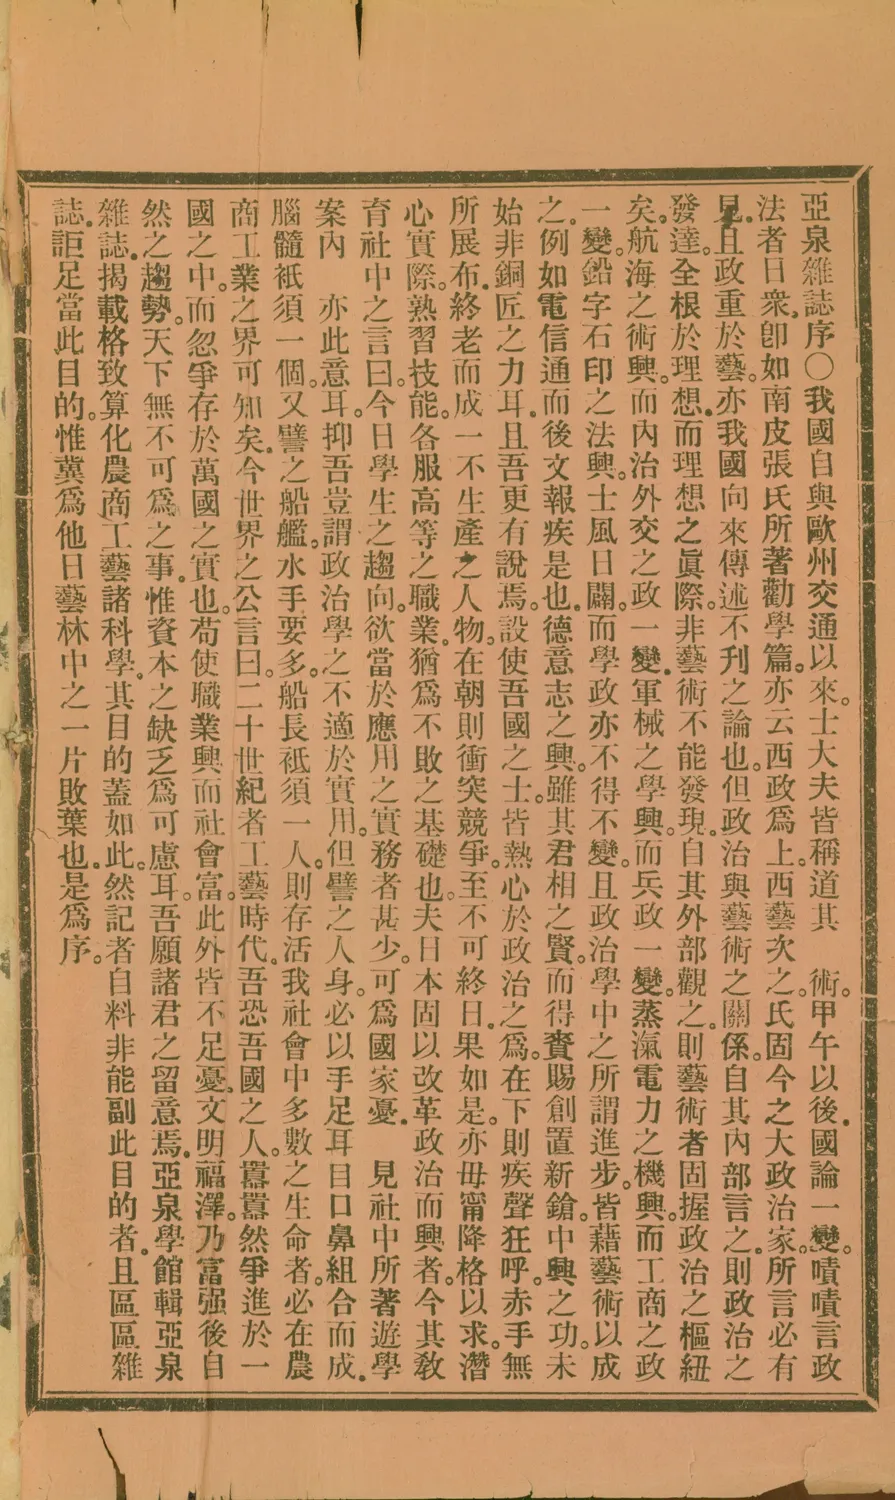 亞泉雜誌序○我國自與歐州交通以來。士大夫皆稱道其　術。甲午以後。國論一變。嘖嘖言政
法者日衆。卽如南皮張氏所著勸學篇。亦云西政爲上。西藝次之。氏固今之大政治家。所言必有
見。且政重於藝。亦我國向來傳述不刊之論也。但政治與藝術之關係。自其內部言之。則政治之
發達。全根於理想。而理想之眞際。非藝術不能發現。自其外部觀之。則藝術者固握政治之樞紐
矣。航海之術興。而內治外交之政一變。軍械之學興。而兵政一變。蒸氣電力之機興。而工商之政
一變。鉛字石印之法興。士風日闢。而學政亦不得不變。且政治學中之所謂進步。皆藉藝術以成
之。例如電信通而後文報疾是也。德意志之興。雖其君相之賢。而得賚賜創置新鎗。中興之功。未
始非銅匠之力耳。且吾更有說焉。設使吾國之士。皆熱心於政治之爲。在下則疾聲狂呼。赤手無
所展布。終老而成一不生產之人物。在朝則衝突競爭。至不可終日。果如是。亦毋甯降格以求。潛
心實際。熟習技能。各服高等之職業。猶爲不敗之基礎也。夫日本固以改革政治而興者。今其敎
育社中之言曰。今日學生之趨向。欲當於應用之實務者甚少。可爲國家憂。　見社中所著遊學
案內　亦此意耳。抑吾豈謂政治學之不適於實用。但譬之人身。必以手足耳目口鼻組合而成。
腦髓祇須一個。又譬之船艦。水手要多。船長祇須一人。則存活我社會中多數之生命者。必在農
商工業之界可知矣。今世界之公言曰。二十世紀者工藝時代。吾恐吾國之人。囂囂然爭進於一
國之中。而忽爭存於萬國之實也。苟使職業興而社會富。此外皆不足憂。文明福澤。乃富强後自
然之趨勢。天下無不可爲之事。惟資本之缺乏爲可慮耳。吾願諸君之留意焉。亞泉學館輯亞泉
雜誌。揭載格致算化農商工藝諸科學。其目的蓋如此。然記者自料非能副此目的者。且區區雜
誌。詎足當此目的。惟冀爲他日藝林中之一片敗葉也。是爲序。